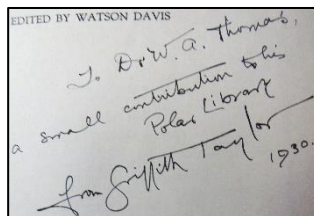 EDITED BY WATSON DAVIS
To Dr W. A. Thomas,
a small contribution to his
Polar Library
from Griffith Taylor
1930.